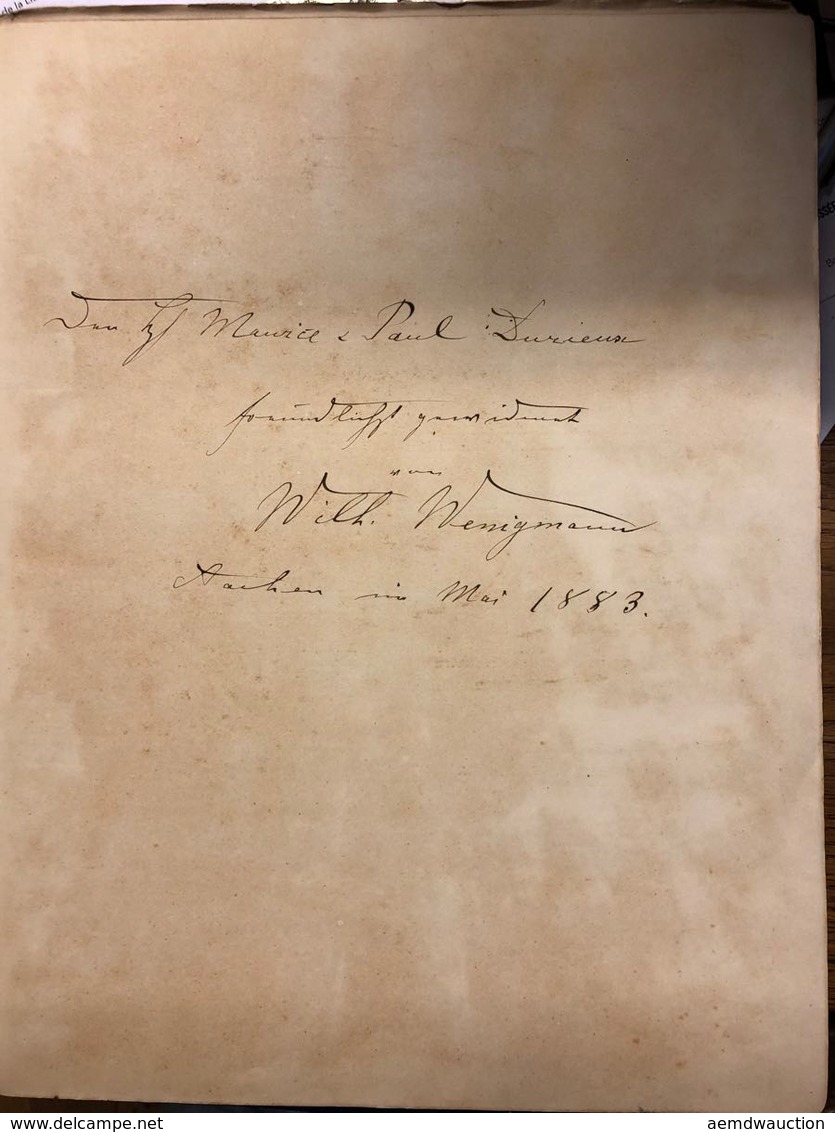 de la
Den HH Maurice & Paul Durieux
freundlichst gewidmet
von
Wilh. Wenigmann
Aachen im Mai 1883.
www.delcampe.net
aemdwauction